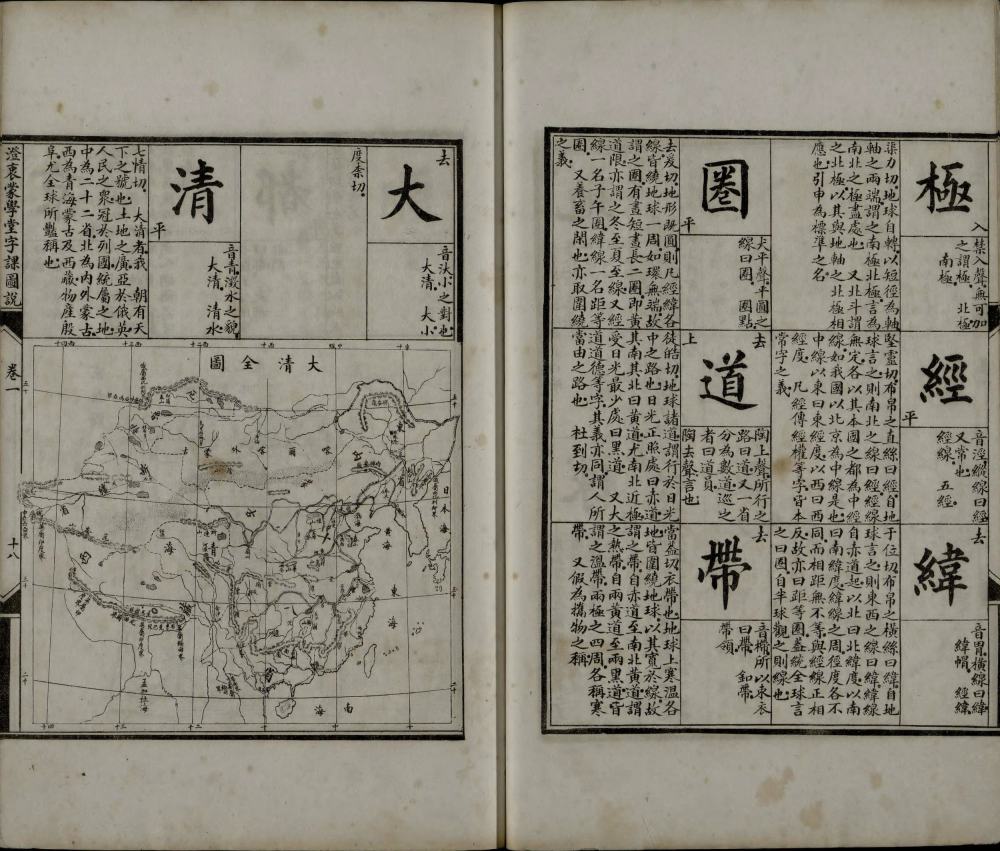 極
入
禁入聲無可加
之謂極 北極
南極
渠力切地球自轉以短徑為軸
軸之兩端謂之南極北極言為
南北之極盡處也 又北斗謂
之北極以其與地軸之北極相
應也引申為標準之名
經
平
音涇縱線曰經
又常也
經線 五經
堅靈切布帛之直絲曰經自地
球言之則南北之線曰經經線
無定各以其本國之都為中經
線如我國以北京為中線是也
中線以東曰東經度以西曰西
經度 凡經傳經權等字皆本
常字之義
緯
去
音胃橫線曰緯
緯帽 經緯
于位切布帛之橫絲曰緯自地
球言之則東西之線曰緯緯線
自赤道起以北曰北緯度以南
曰南緯度緯線之周徑度各不
同而相距無不等與經線正相
反故亦曰距等圈蓋統全球言
之曰圈自半球觀之則線也
圈
平
犬平聲平圓之
線曰圈 圈點
去爰切地形既圓則凡經緯各
線皆繞地球一周如環無端故
謂之圈有晝短晝長二圈即黃
道限亦謂之冬至夏至線又經
線一名子午圈緯線一名距等
圈 又養畜之閑也亦取圍繞
之義
道
去
上
陶上聲所行之
路曰道又一省
分為數道巡之
者曰道員
陶去聲言也
徒皓切地球諸道謂行於日光
中之路也日光正照處曰赤道
其南其北曰黃道尤南北近極
受日光最少處曰黑道 又大
道道德等字其義亦同謂人所
當由之路也 杜到切
帶
去
音帶所以束衣
曰帶 紳帶
帶領
當蓋切衣帶也地球上寒溫各
地皆圍繞地球以其寬於線故
謂之帶自赤道至南北黃道謂
之熱帶自兩黃道至兩黑道皆
謂之溫帶兩極之四周各稱寒
帶 又假為攜物之稱
大
去
音汏小之對也
大清 大小
度柰切
清
平
音青澂水之貌
大清 清水
七情切 大清者我 朝有天
下之號也土地之廣亞於俄英
人民之衆冠於列國統屬之地
中為二十二省北為內外蒙古
西為青海蒙古及西藏物產殷
阜尤全球所豔稱也
大清全圖
日本海
黃海
東海
南海
青海
澄衷蒙學堂字課圖說
卷一
十八